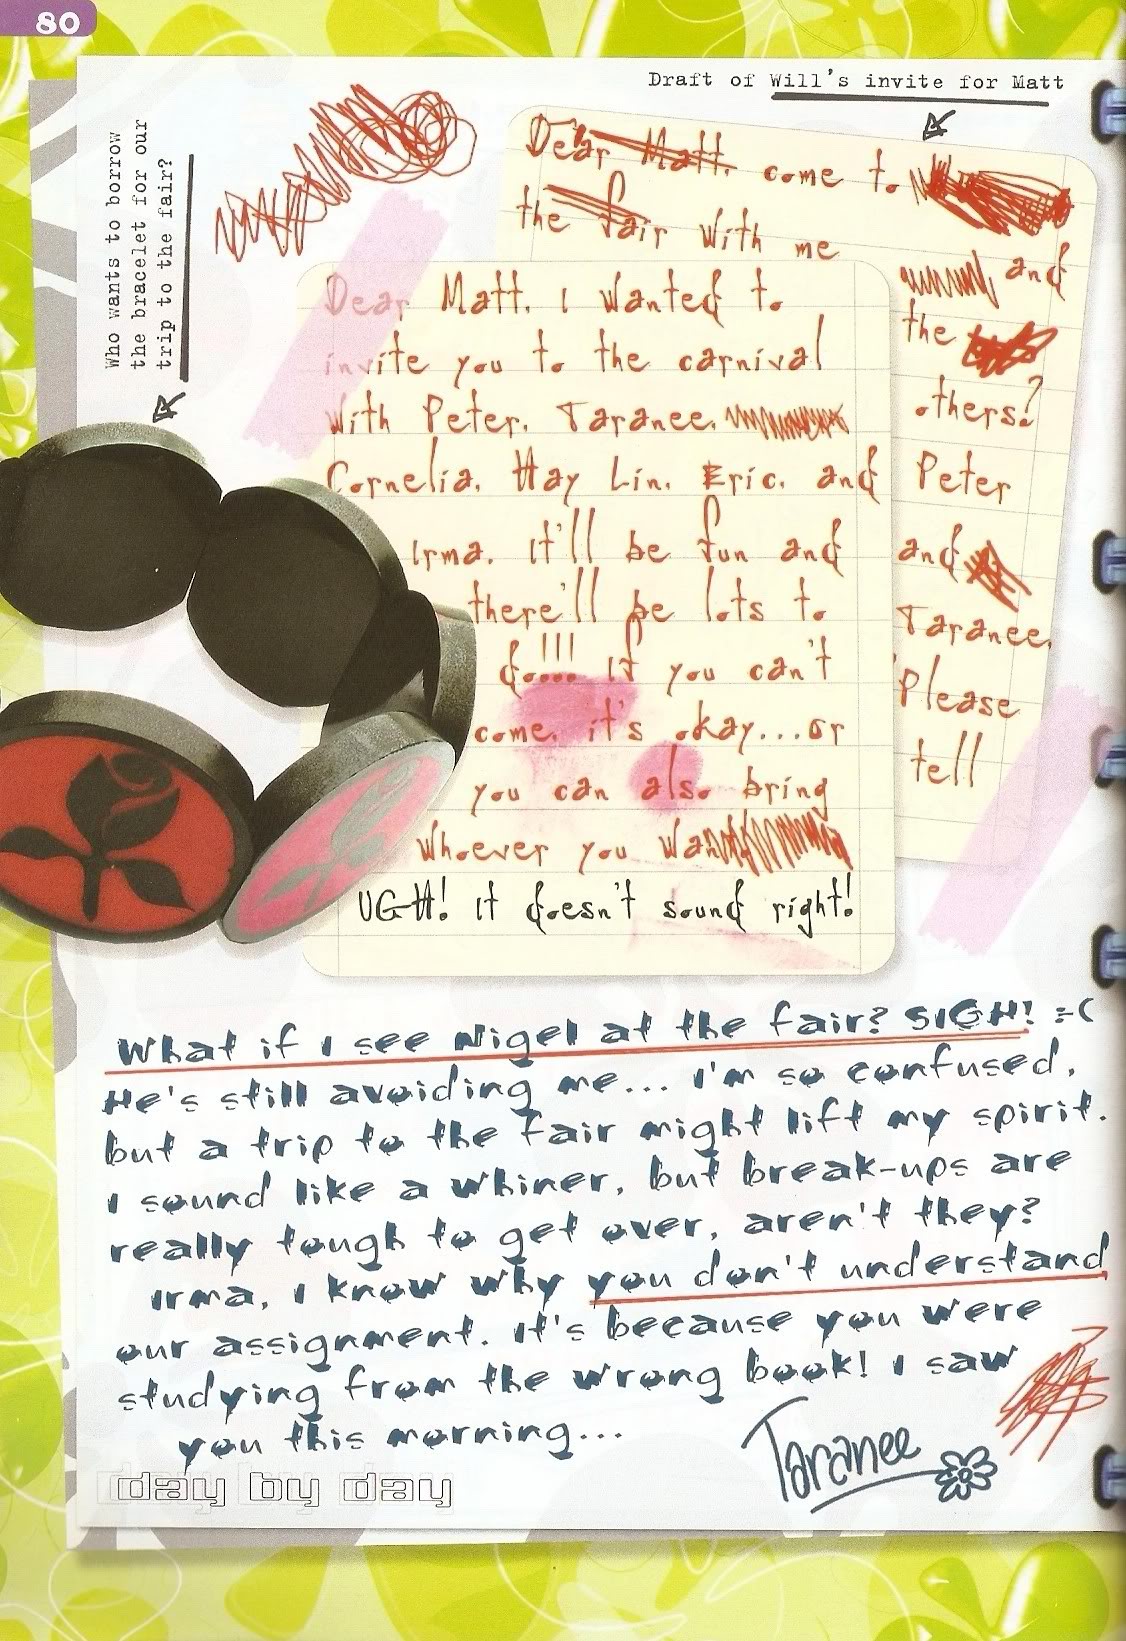 80
Draft of Will's invite for Matt
Who wants to borrow
the bracelet for our
trip to the fair?
Dear Matt, come to
the fair with me
and
the
others?
Peter
and
Taranee.
Please
tell
Dear Matt, I wanted to
invite you to the carnival
with Peter, Taranee,
Cornelia, Hay Lin, Eric, and
Irma. It'll be fun and
there'll be lots to
do!!! If you can't
come, it's okay...or
you can also bring
whoever you wan
UGH! It doesn't sound right!
What if I see Nigel at the fair? SIGH! =(
He's still avoiding me... I'm so confused,
but a trip to the fair might lift my spirit.
I sound like a whiner, but break-ups are
really tough to get over, aren't they?
Irma, I know why you don't understand
our assignment. It's because you were
studying from the wrong book! I saw
you this morning...
Taranee
day by day